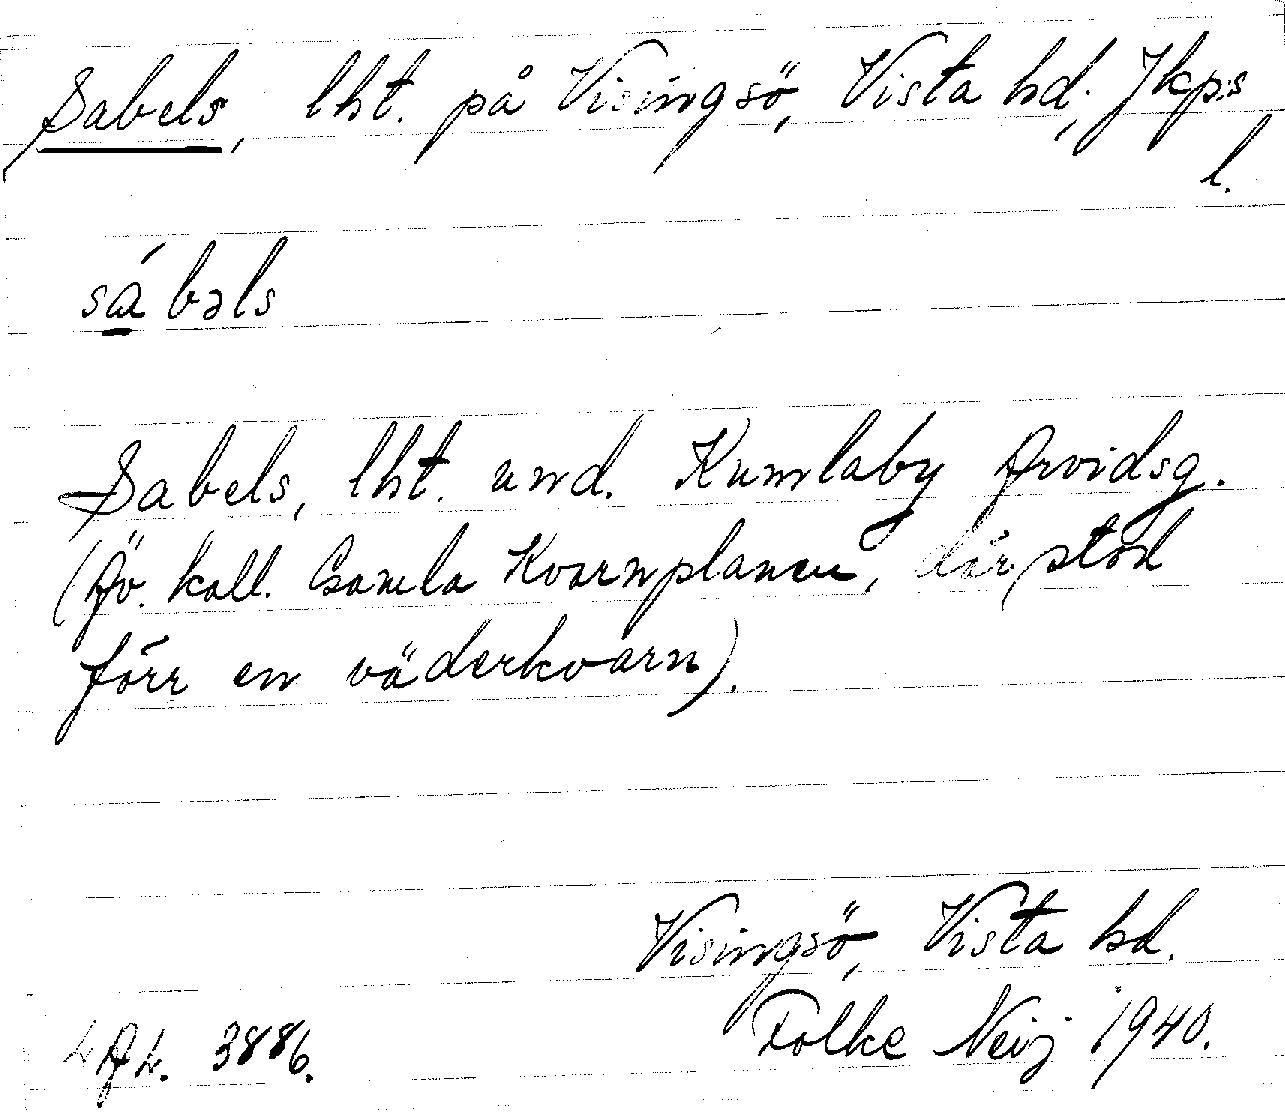 Sabels, lht. på Visingsö, Vista hd, Jkps
l.
sábəls
Sabels, lht. und. Kumlaby Arvidsg.
(Äv. kall. Gamla Kvarnplanen, där stod
förr en väderkvarn).
Visingsö, Vista hd.
Folke Neij 1940.
3886.